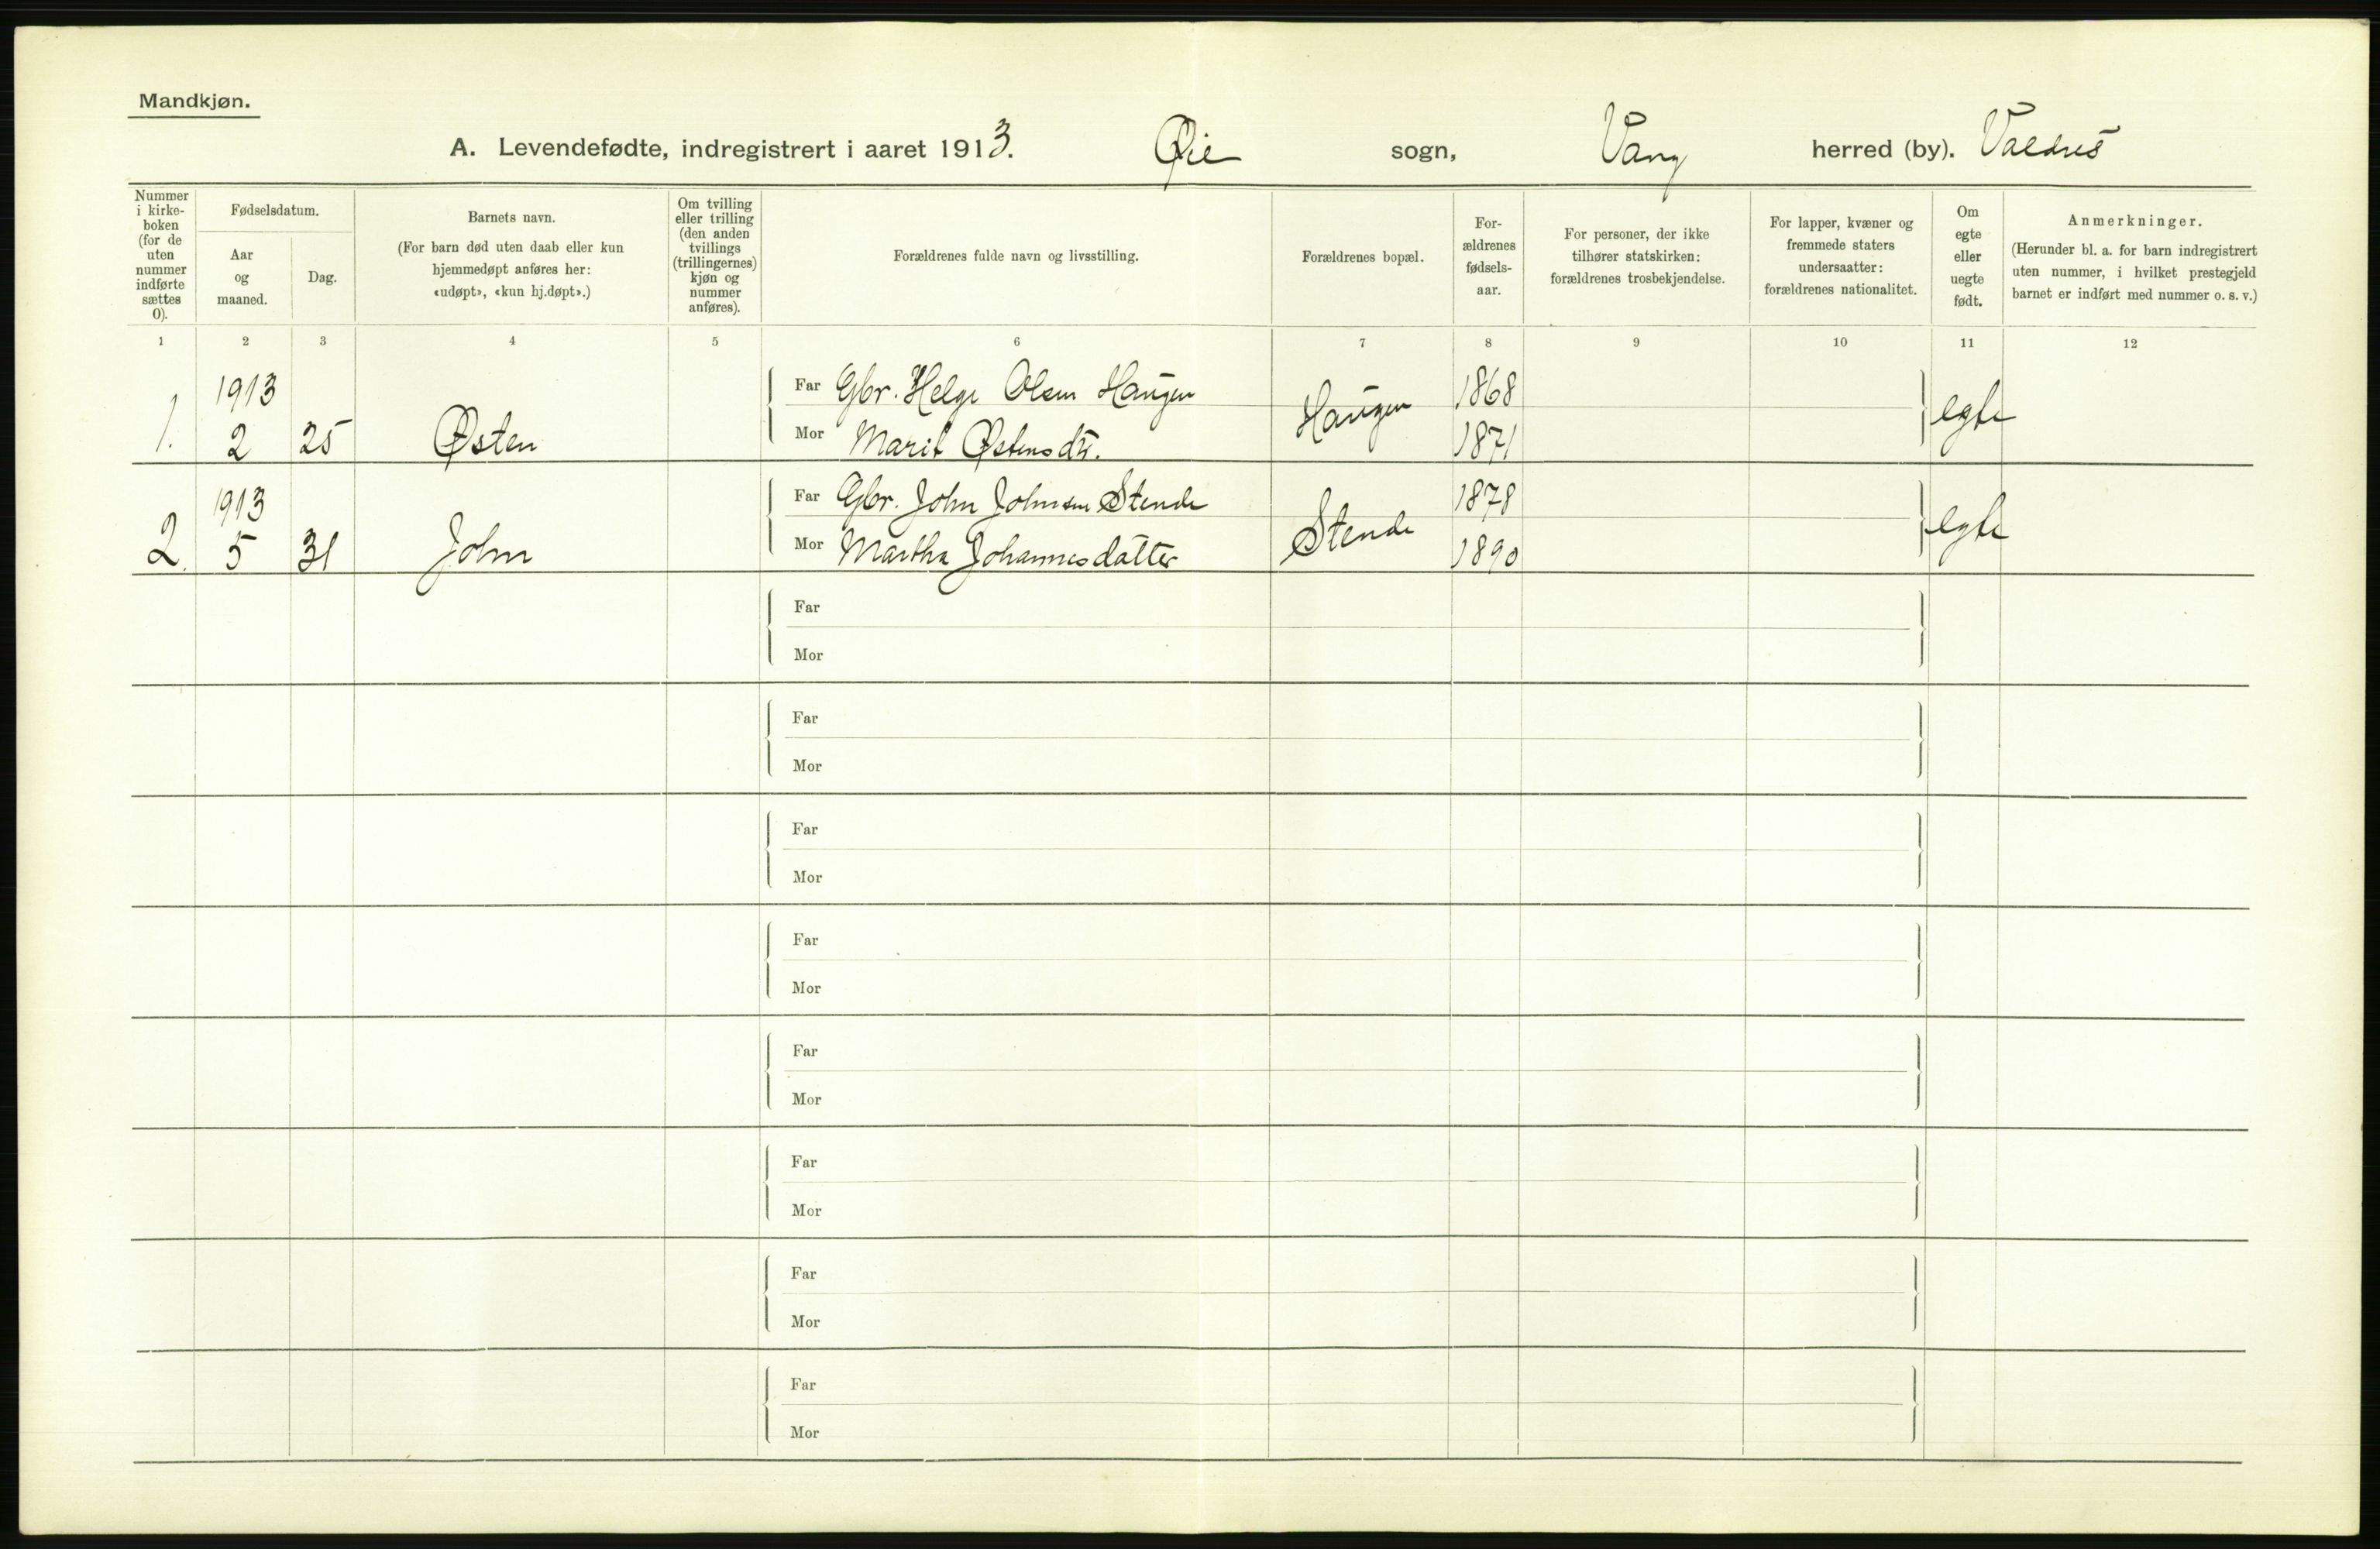 Mandkjøn.
A. Levendefødte, indregistrert i aaret 1913. Øie sogn, Vang herred (by). Valdres
Nummer i kirke-boken (for de uten nummer indførte sættes 0).
Fødselsdatum.
Aar og maaned.
Dag.
Barnets navn.
(For barn død uten daab eller kun hjemmedøpt anføres her: «udøpt», «kun hj.døpt».)
Om tvilling eller trilling (den anden tvillings (trillingernes) kjøn og nummer anføres).
Forældrenes fulde navn og livsstilling.
Forældrenes bopæl.
For-ældrenes fødsels-aar.
For personer, der ikke tilhører statskirken: forældrenes trosbekjendelse.
For lapper, kvæner og fremmede staters undersaatter: forældrenes nationalitet.
Om egte eller uegte født.
Anmerkninger.
(Herunder bl. a. for barn indregistrert uten nummer, i hvilket prestegjeld barnet er indført med nummer o. s. v.)
1 2 3 4 5 6 7 8 9 10 11 12
1. 1913 2 25 Østen
Far Gbr. Helge Olsen Haugen Haugen 1868 egte
Mor Marit Østensdtr. 1871
2. 1913 5 31 John
Far Gbr. John Johnsen Stende Stende 1878 egte
Mor Martha Johannesdatter 1890
Far
Mor
Far
Mor
Far
Mor
Far
Mor
Far
Mor
Far
Mor
Far
Mor
Far
Mor